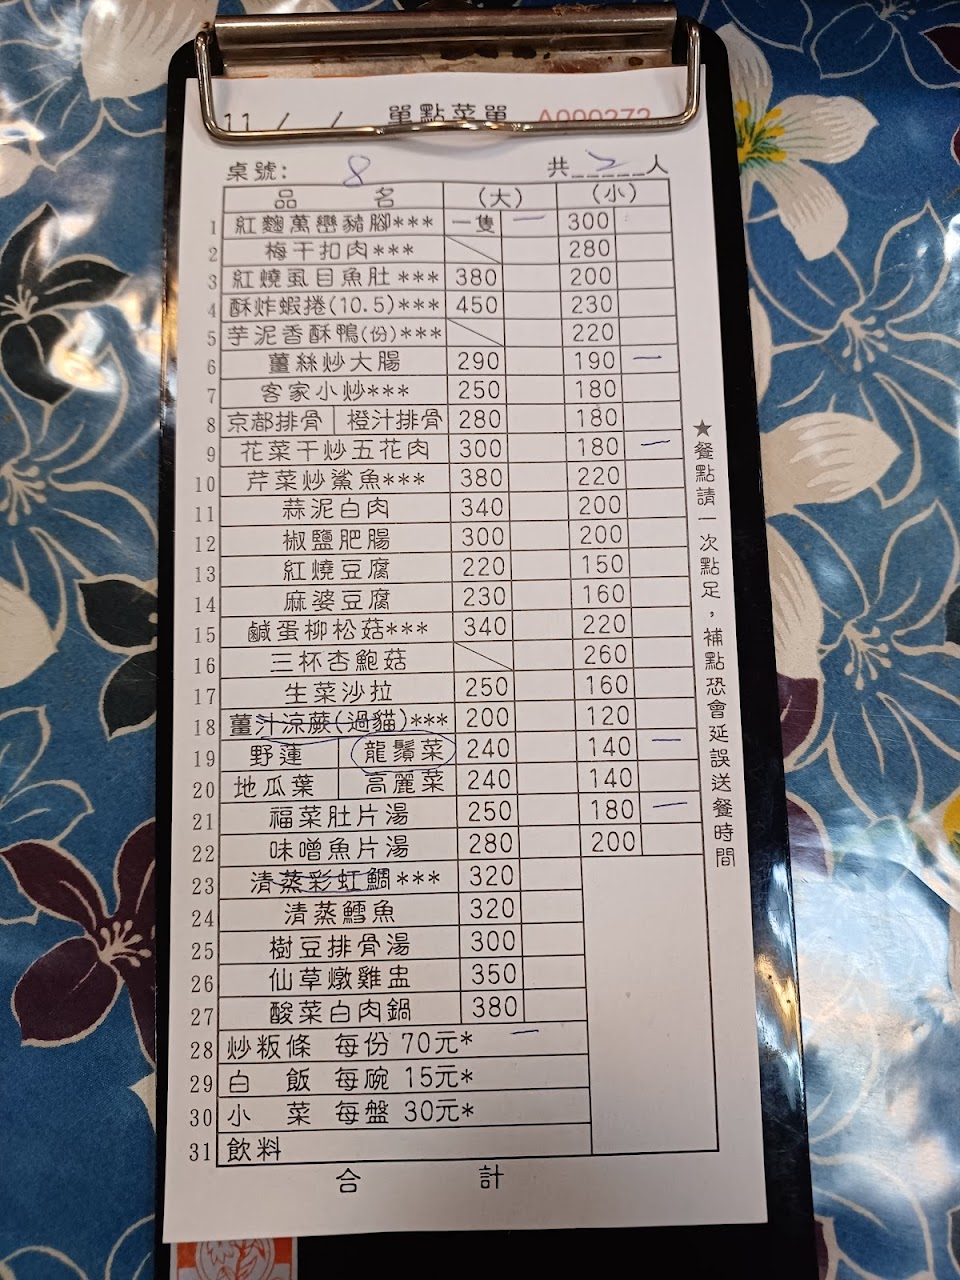 11 / / 單點菜單 A000272
桌號: 8 共 2 人
品 名 (大) (小)
1 紅麴萬巒豬腳*** 一隻 一 300
2 梅干扣肉*** 280
3 紅燒虱目魚肚*** 380 200
4 酥炸蝦捲(10.5)*** 450 230
5 芋泥香酥鴨(份)*** 220
6 薑絲炒大腸 290 190 一
7 客家小炒*** 250 180
8 京都排骨 橙汁排骨 280 180
9 花菜干炒五花肉 300 180 一
10 芹菜炒鯊魚*** 380 220
11 蒜泥白肉 340 200
12 椒鹽肥腸 300 200
13 紅燒豆腐 220 150
14 麻婆豆腐 230 160
15 鹹蛋柳松菇*** 340 220
16 三杯杏鮑菇 260
17 生菜沙拉 250 160
18 薑汁涼蕨(過貓)*** 200 120
19 野蓮 龍鬚菜 240 140 一
20 地瓜葉 高麗菜 240 140
21 福菜肚片湯 250 180 一
22 味噌魚片湯 280 200
23 清蒸彩虹鯛*** 320
24 清蒸鱈魚 320
25 樹豆排骨湯 300
26 仙草燉雞盅 350
27 酸菜白肉鍋 380
28 炒粄條 每份 70元* 一
29 白 飯 每碗 15元*
30 小 菜 每盤 30元*
31 飲料
合 計
★餐點請一次點足，補點恐會延誤送餐時間